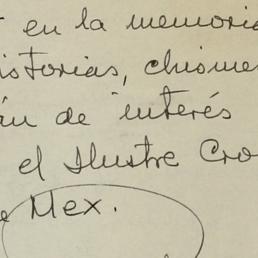 en la memoria
istorias, chisme
án de interés
el Ilustre Cro
e Mex.